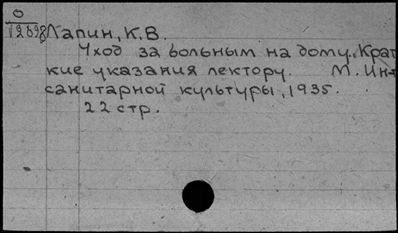 О
V2898
Лапин, К.В.
Уход за больным на дому. Крат
кие указания лектору. М. Ин-т
санитарной культуры, 1935.
22 стр.